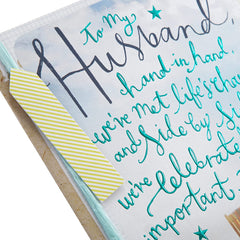 To My
Husband,
hand in hand,
we've met life's
and side by
we've celebrate
important